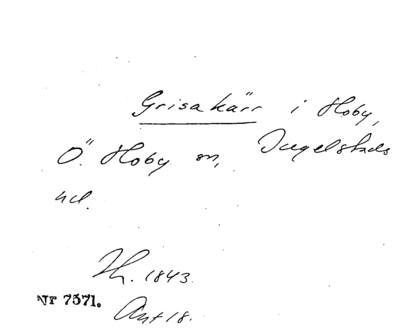 Grisakärr i Hoby,
Ö. Hoby sn, Ingelstads
hd.
Th. 1843.
Nr 7571.
Ant 18.